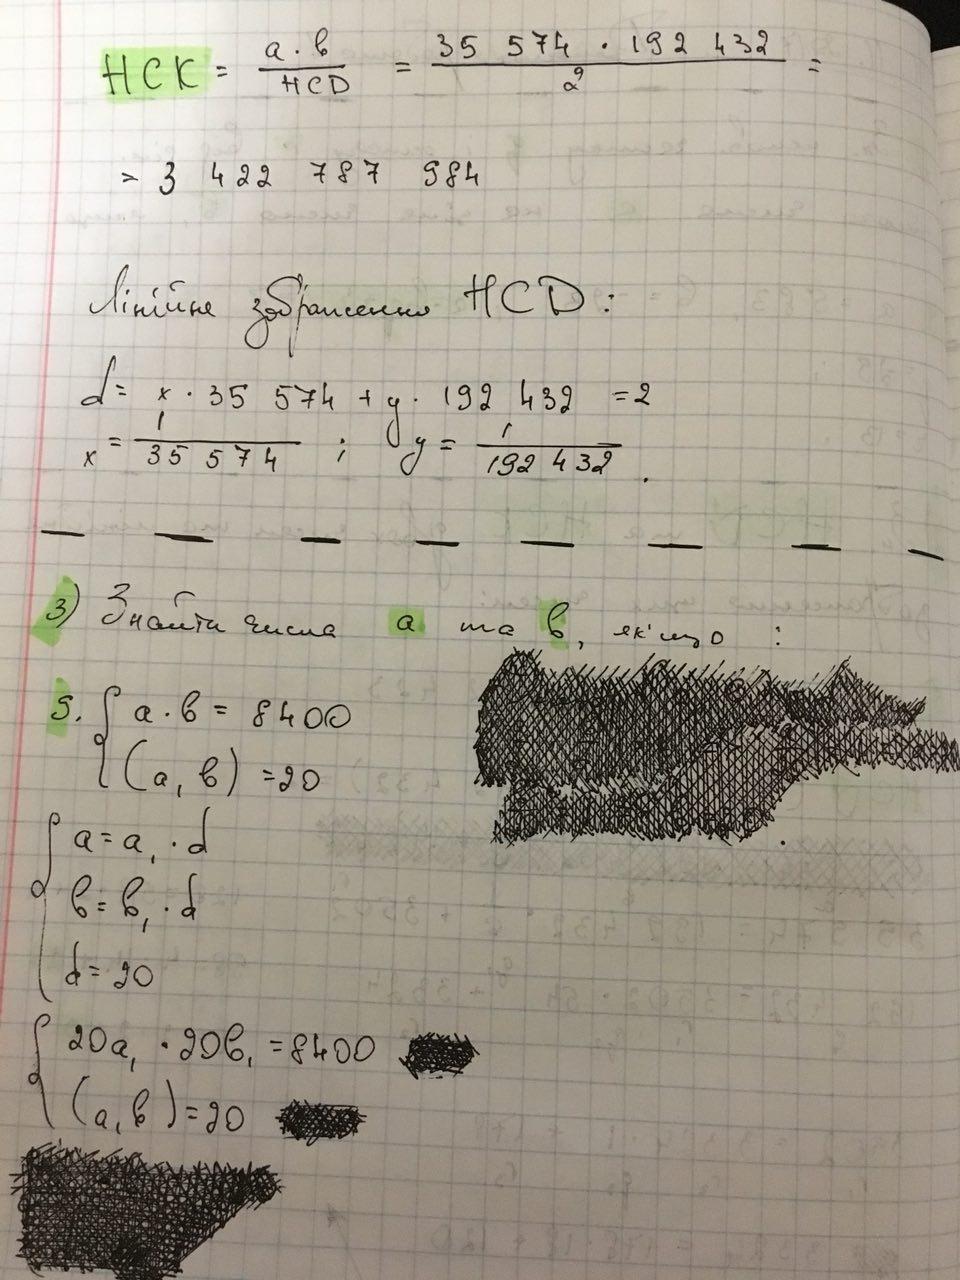 НСК = a · b / НСD = 35 574 · 192 432 / 2 =
= 3 422 787 984
Лінійне зображення НСD:
d = x · 35 574 + y · 192 432 = 2
x = 1 / 35 574 ; y = 1 / 192 432 .
3) Знайти числа a та b, якщо :
5. { a · b = 8400
(a, b) = 20
{ a = a₁ · d
b = b₁ · d
d = 20
{ 20a₁ · 20b₁ = 8400
(a, b) = 20